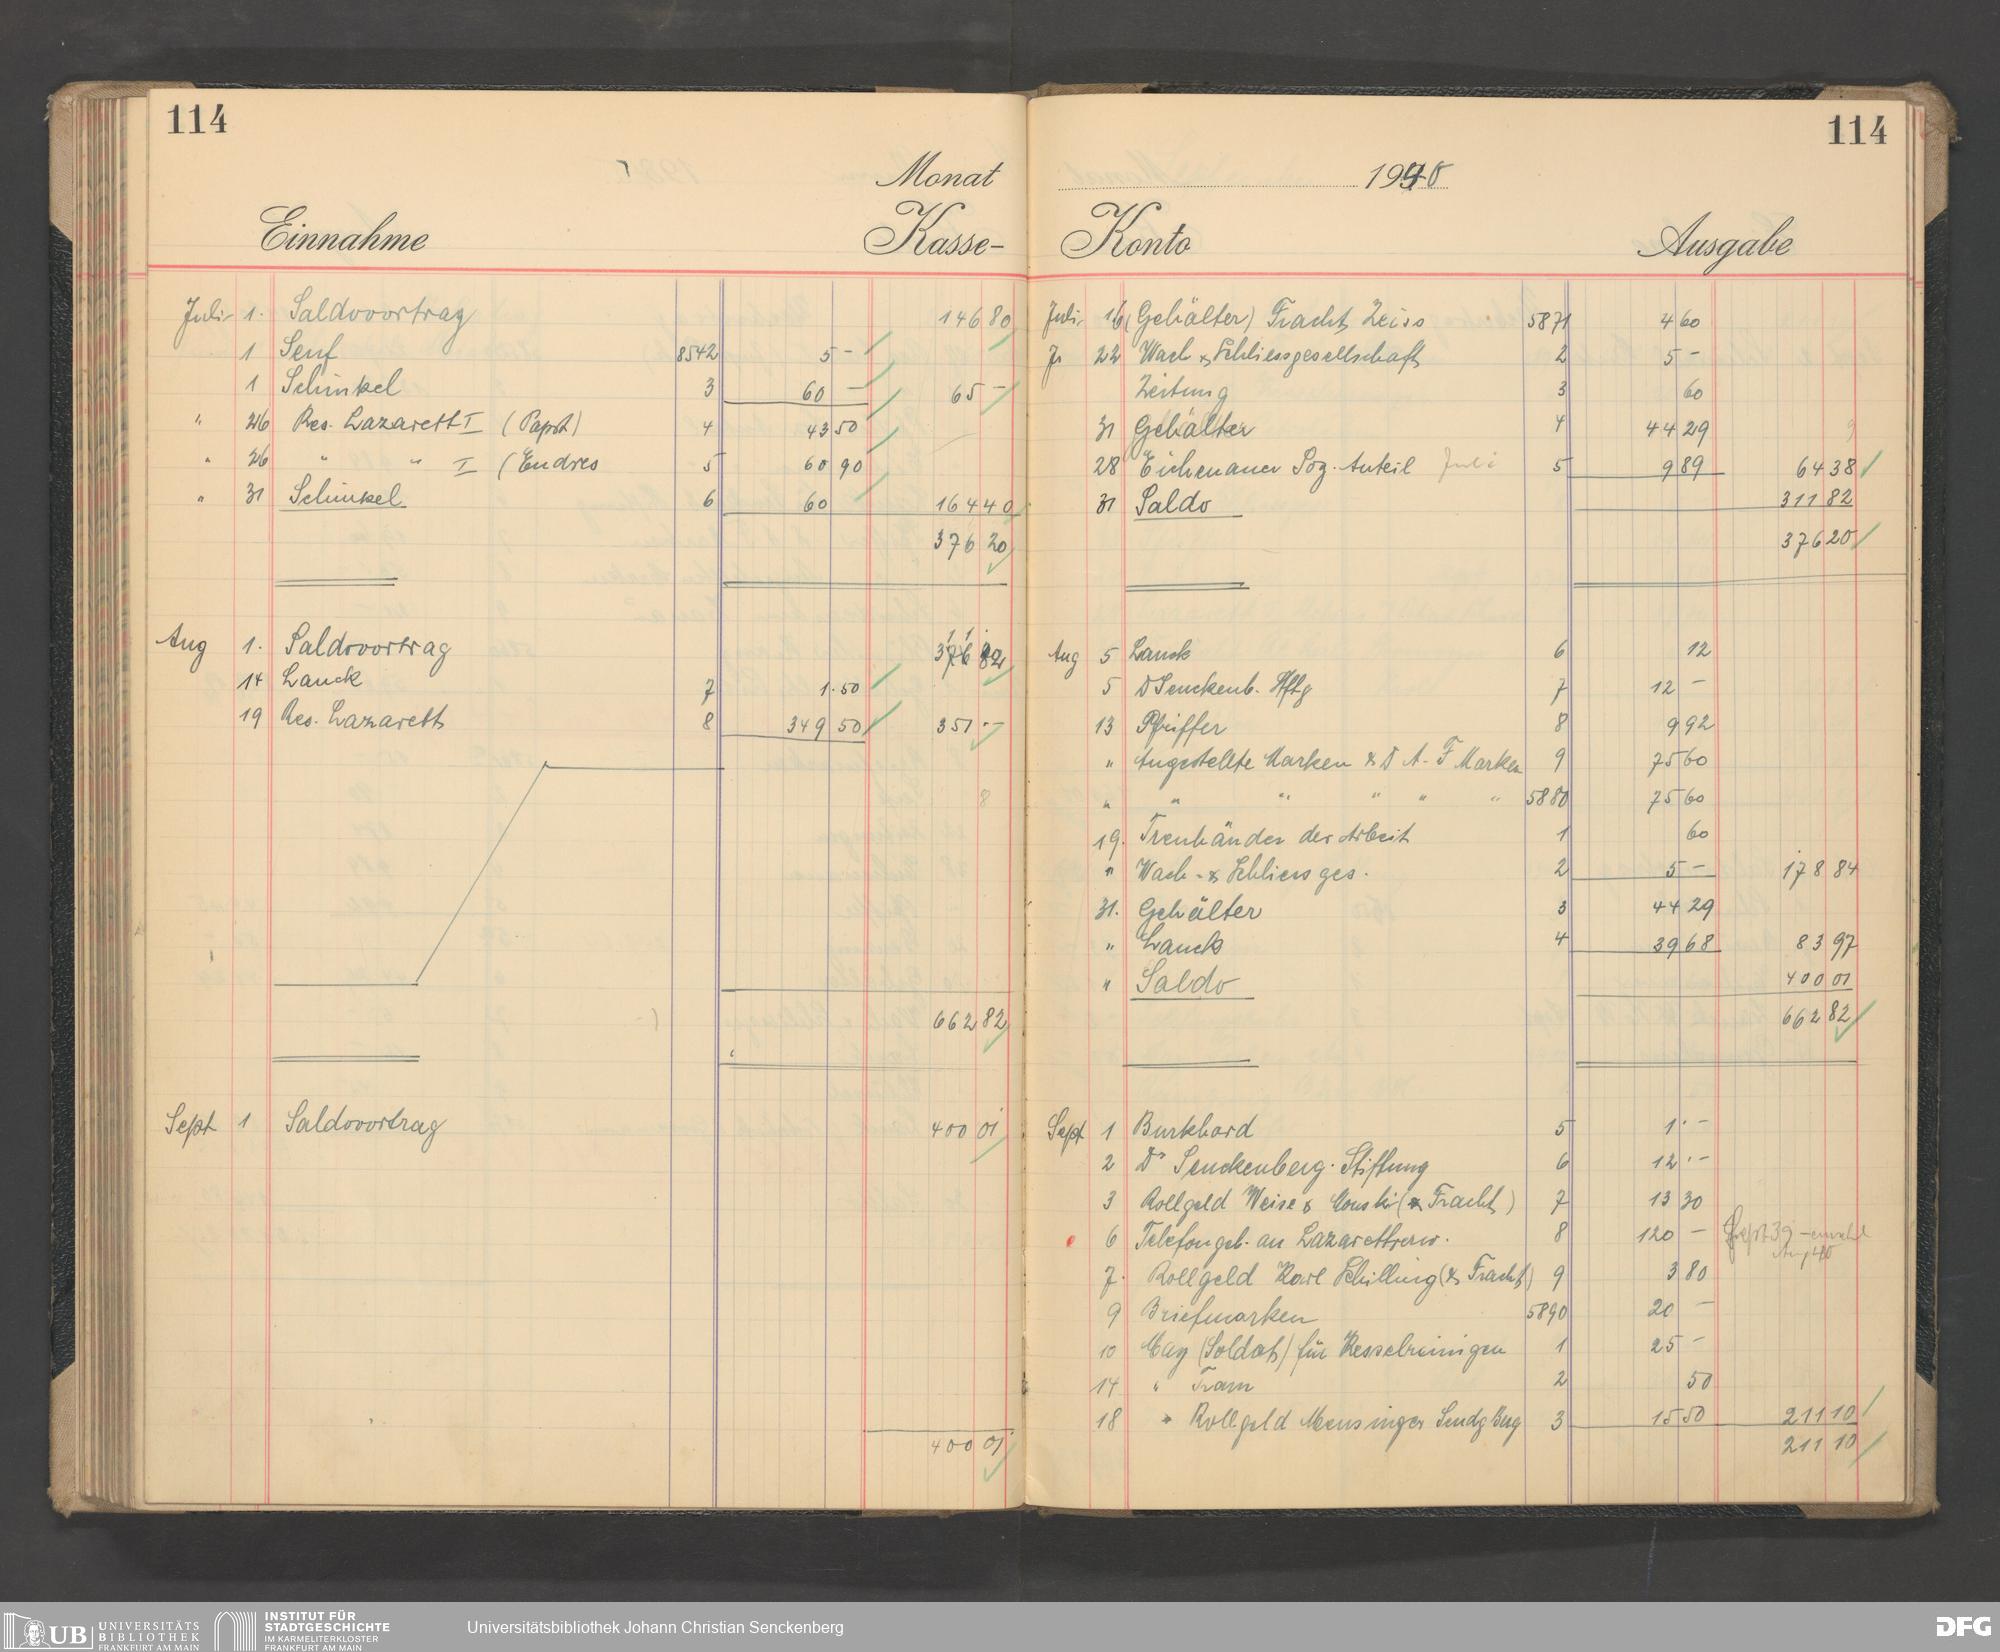 114
Monat
Einnahme Kasse-
Juli 1. Saldovortrag 146 80
1 Senf 8542 5 -
1 Schinkel 3 60 - 65 -
" 26 Res. Lazarett I (Papst) 4 43 50
" 26 " " I (Endres 5 60 90
" 31 Schinkel 6 60 164 40
376 20
Aug 1. Saldovortrag 311 82
14 Lauck 7 1.50
19 Res. Lazarett 8 349 50 351 .-
8
662 82
Sept 1 Saldovortrag 400 01
400 01
114
1940
Konto Ausgabe
Juli 16 (Gehälter) Fracht Zeiss 5871 4 60
22 Wach & Schliessgesellschaft 2 5 -
Zeitung 3 60
31 Gehälter 4 44 29
28 Eichenauer Soz. Anteil Juli 5 9 89 64 38
31 Saldo 311 82
376 20
Aug 5 Lauck 6 12
5 D Senckenb. Stftg 7 12 -
13 Pfeiffer 8 9 92
" Angestellte Marken & D A. F Marken 9 75 60
" " " " " " 5880 75 60
19. Treuhänder der Arbeit 1 60
" Wach- & Schliessges. 2 5 - 178 84
31. Gehälter 3 44 29
" Lauck 4 39 68 83 97
" Saldo 400 01
662 82
Sept 1 Burkhard 5 1.-
2 Dr Senckenberg. Stiftung 6 12.-
3 Rollgeld Weise & Monski (& Fracht) 7 13 30
6 Telefongeb. an Lazarettverw. 8 120 - Sept 39 - einschl Aug 40
7. Rollgeld Karl Schilling (& Fracht) 9 3 80
9 Briefmarken 5890 20 -
10 May (Soldat) für Kesselreinigen 1 25 -
14 " Tram 2 50
18 " Rollgeld Mensinger Sendg Bug 3 15 50 211 10
211 10
UB UNIVERSITÄTS
BIBLIOTHEK
FRANKFURT AM MAIN
INSTITUT FÜR
STADTGESCHICHTE
IM KARMELITERKLOSTER
FRANKFURT AM MAIN
Universitätsbibliothek Johann Christian Senckenberg
DFG